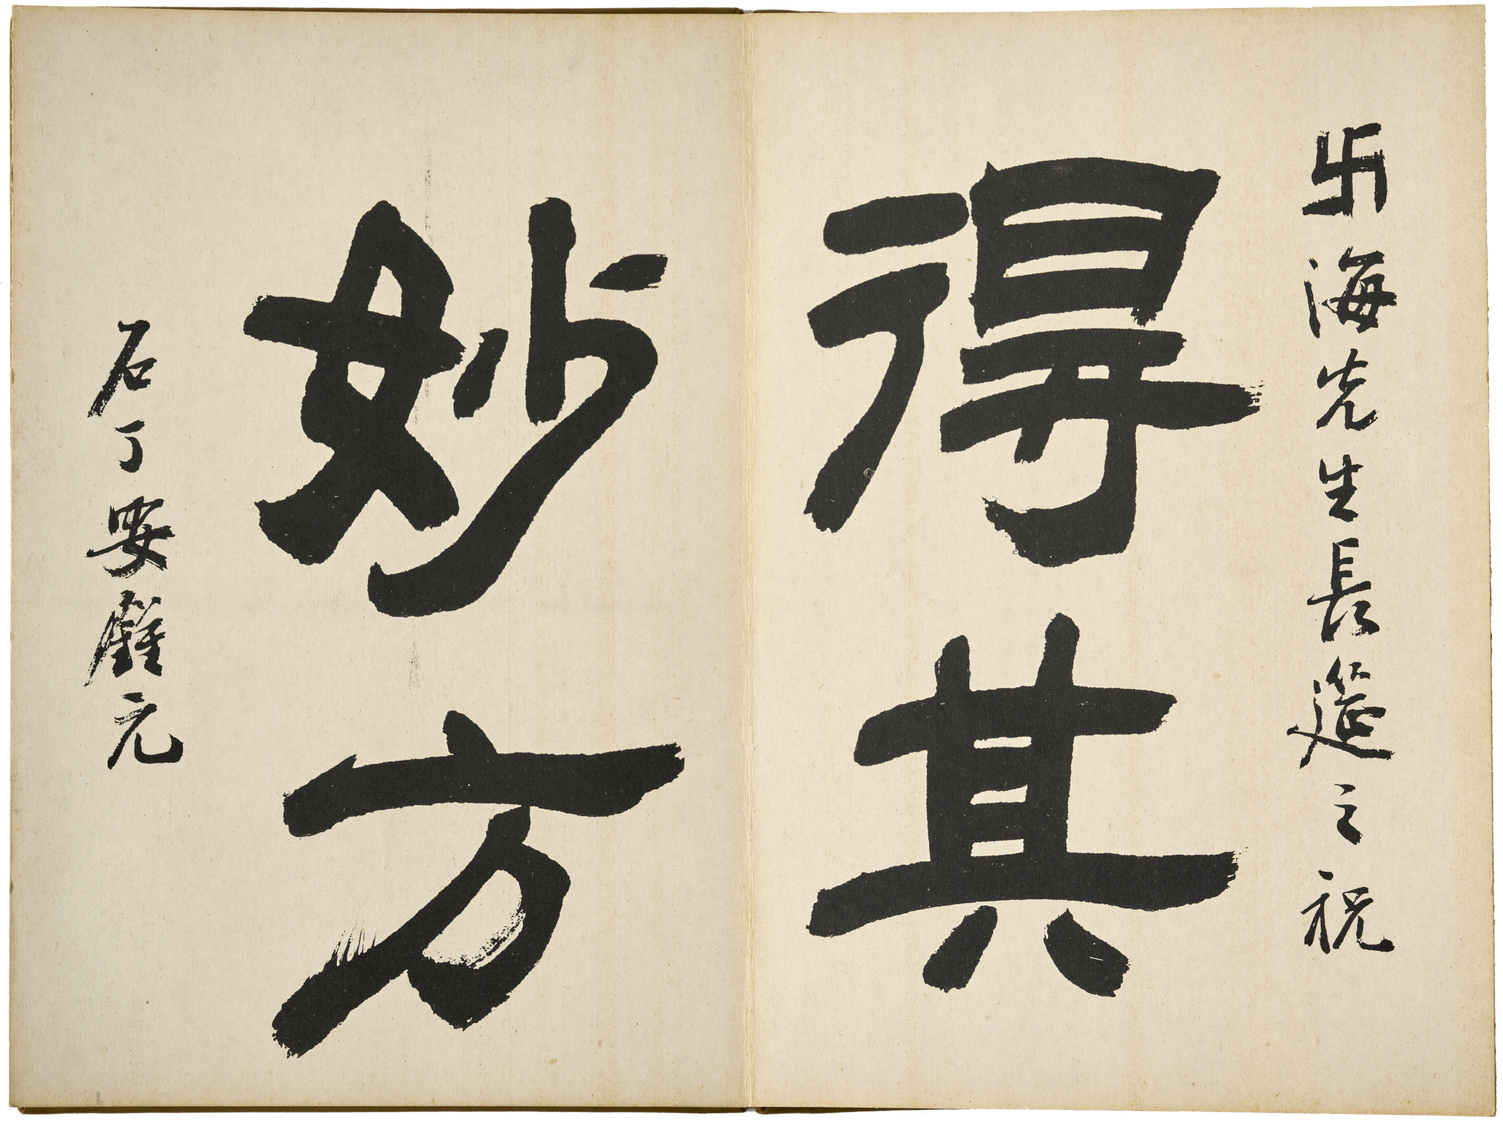 卐海先生長筵之祝
得其
妙方
石丁安鍾元